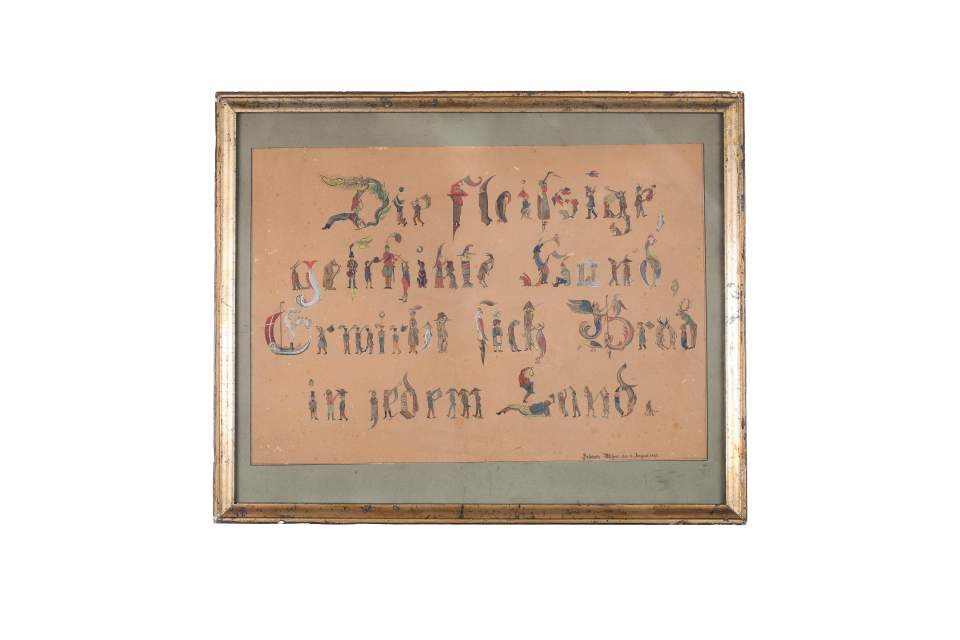 Die fleissige,
geschikte Hand
Erwirbt sich Brod
in jedem Land.
den August